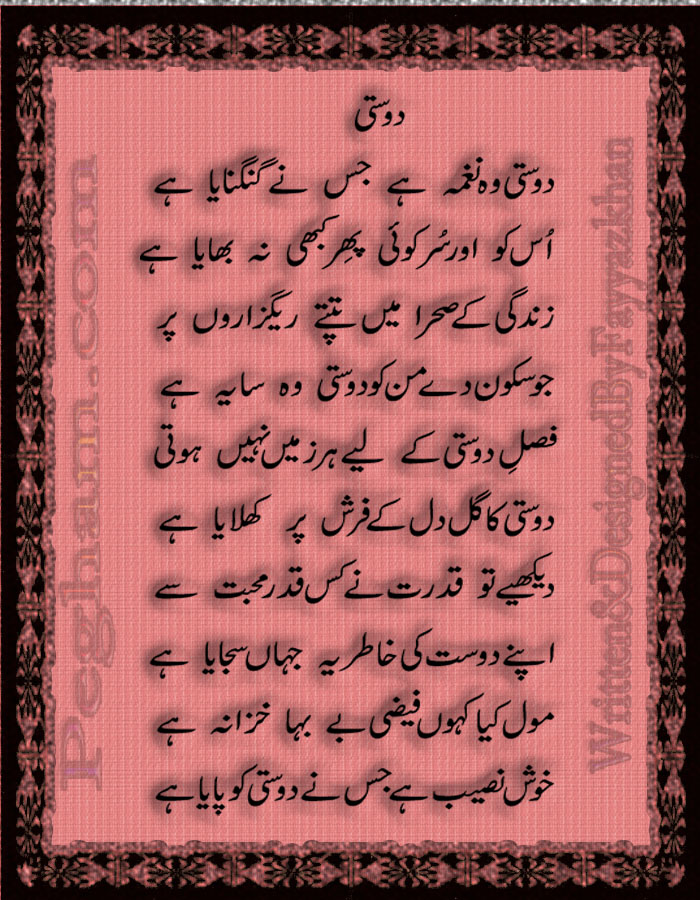 دوستی
دوستی وہ نغمہ ہے جس نے گنگنایا ہے
اُس کو اور سُر کوئی پھِر کبھی نہ بھایا ہے
زندگی کے صحرا میں تپتے ریگزاروں پر
جو سکون دے من کو دوستی وہ سایہ ہے
فصلِ دوستی کے لیے ہر زمیں نہیں ہوتی
دوستی کا گل دل کے فرش پر کھلایا ہے
دیکھیے تو قدرت نے کس قدر محبت سے
اپنے دوست کی خاطر یہ جہاں سجایا ہے
مول کیا کہوں فیضی بے بہا خزانہ ہے
خوش نصیب ہے جس نے دوستی کو پایا ہے
Written&DesignedByFayyazkhan
Peghaam.com